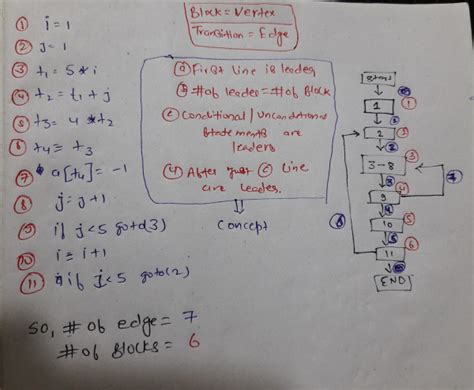 Block = Vertex
Transition = Edge
① i = 1
② j = 1
③ t₁ = 5 * i
④ t₂ = t₁ + j
⑤ t₃ = 4 * t₂
⑥ t₄ = t₃
⑦ a[t₄] = -1
⑧ j = j + 1
⑨ if j < 5 goto(3)
⑩ i = i + 1
⑪ if j < 5 goto(2)
ⓐ First line is leader
# of leader = # of Block
ⓒ Conditional / Unconditional
statements are
leaders
(4) After just ⓒ line
are leader.
Concept
Start
1 ①
2 ②
3-8 ③
9 ④
10 ⑤
11 ⑥
END
So, # of edge = 7
# of Blocks = 6